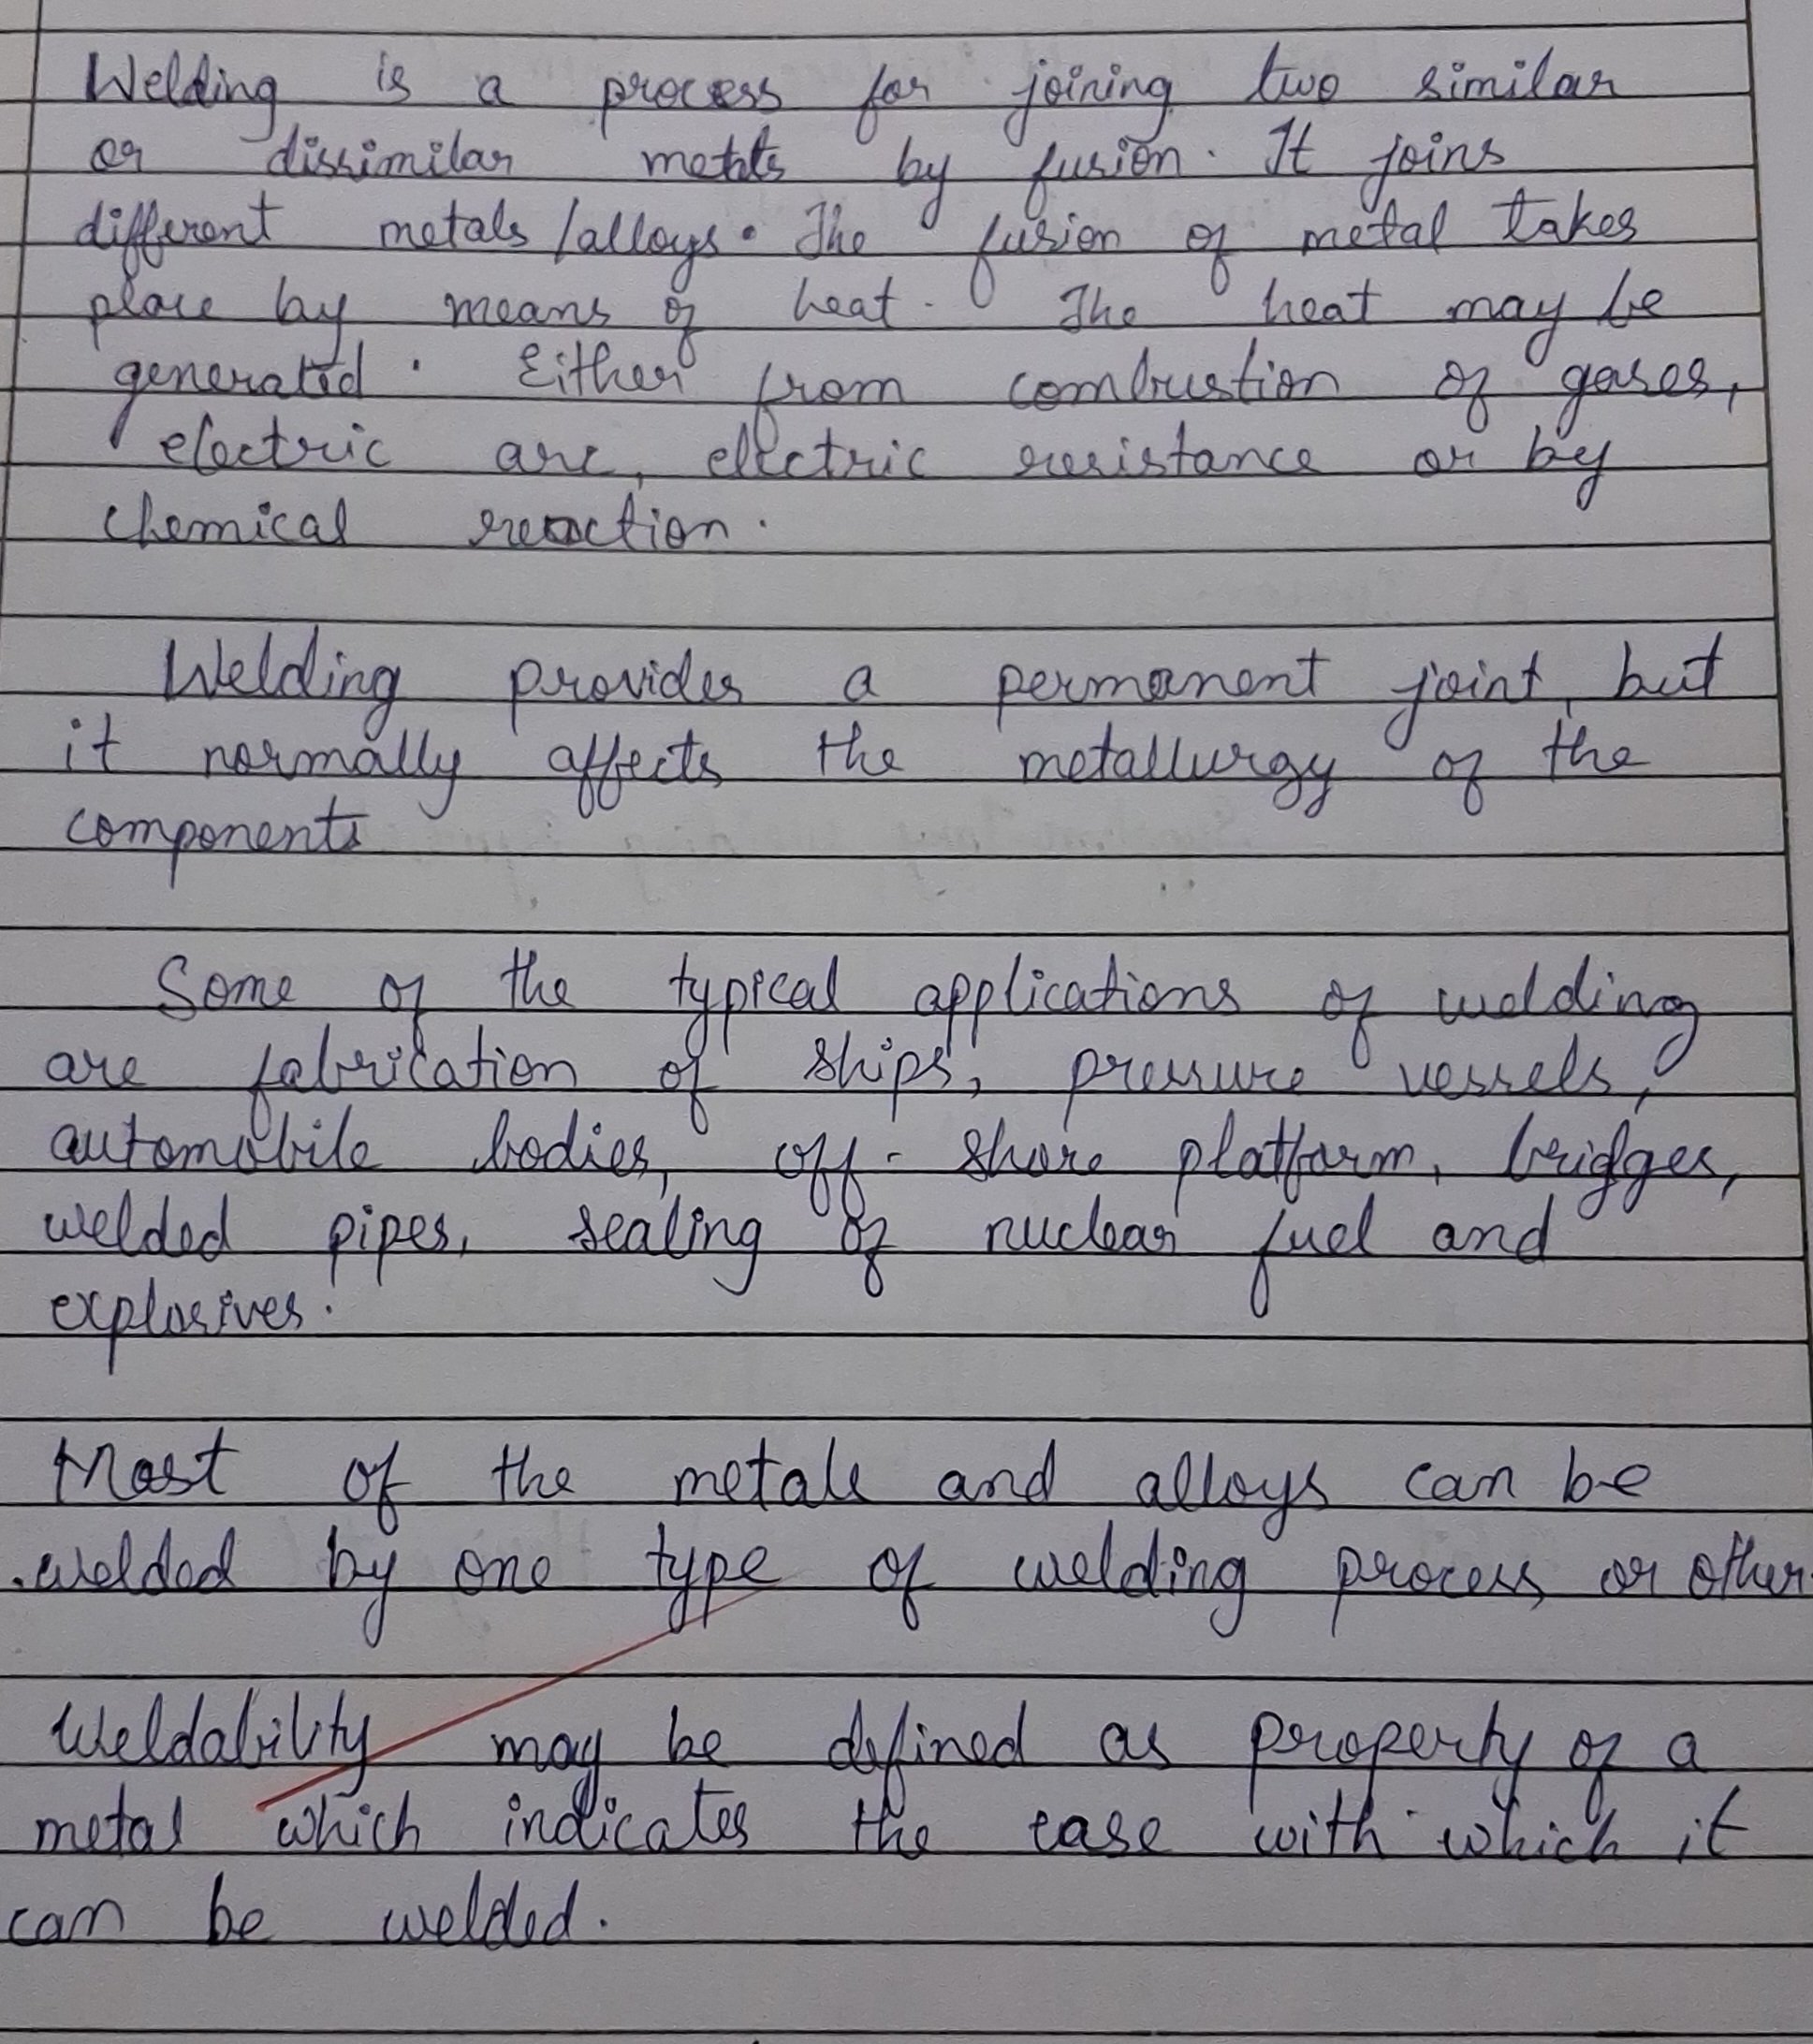 Welding is a process for joining two similar
or dissimilar metals by fusion. It joins
different metals/alloys. The fusion of metal takes
place by means of heat. The heat may be
generated. Either from combustion of gases,
electric arc, electric resistance or by
chemical reaction.
Welding provides a permanent joint, but
it normally affects the metallurgy of the
components
Some of the typical applications of welding
are fabrication of ships, pressure vessels,
automobile bodies, off-shore platform, bridges,
welded pipes, sealing of nuclear fuel and
explosives.
Most of the metals and alloys can be
welded by one type of welding process or other.
Weldability may be defined as property of a
metal which indicates the ease with which it
can be welded.